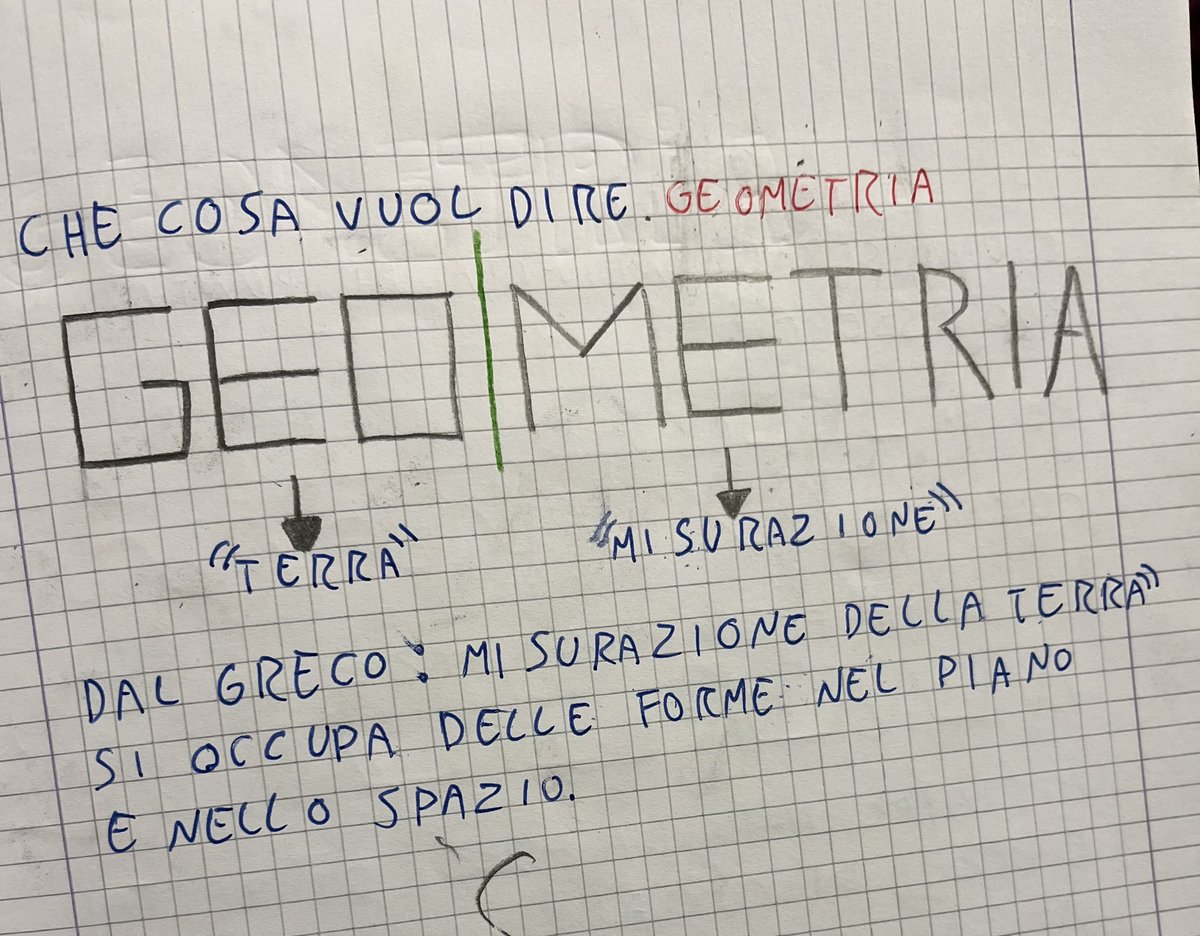 CHE COSA VUOL DIRE. GEOMETRIA
GEO|METRIA
"TERRA" "MISURAZIONE"
DAL GRECO: MISURAZIONE DELLA TERRA"
SI OCCUPA DELLE FORME NEL PIANO
E NELLO SPAZIO.